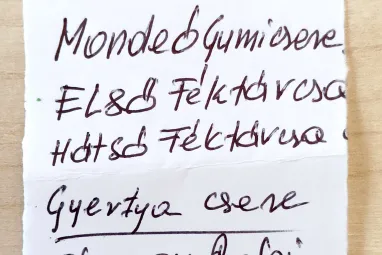 Mondeó Gumicsere
ELSŐ Féktárcsa
HátSó Féktárcsa
Gyertya csere